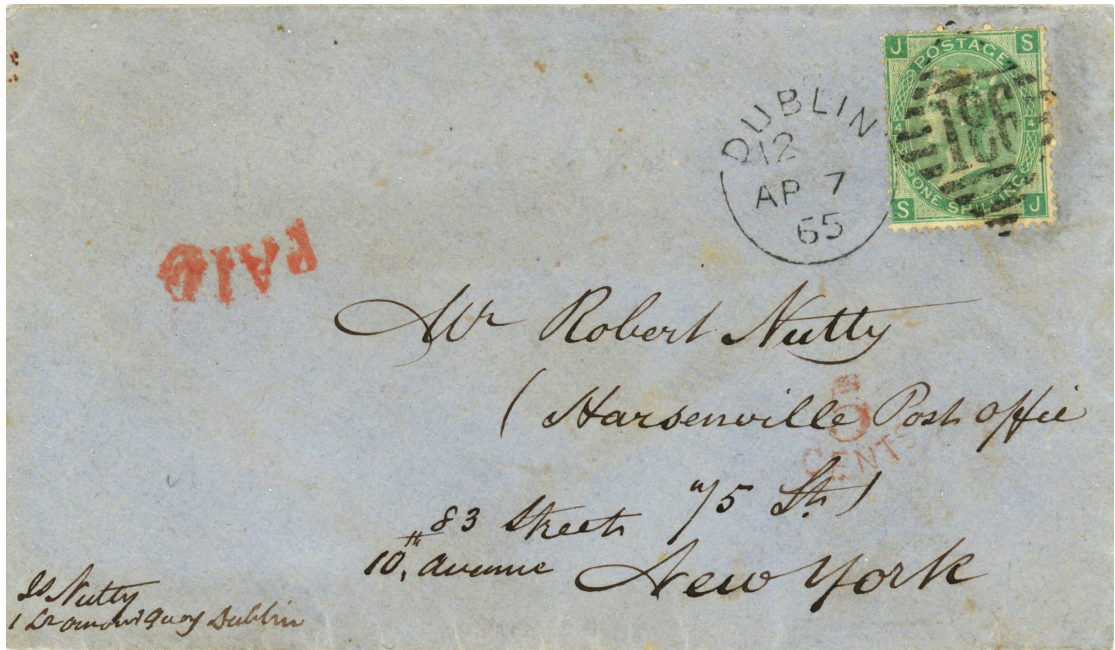 J S
POSTAGE
4 4
186
ONE SHILLING
S J
DUBLIN
12
AP 7
65
PAID
Mr Robert Nutty
(Harsenville Post Offie
CENTS
75 St.)
83 Street
10th, avenue
New York
Nutty
1 Quay Dublin